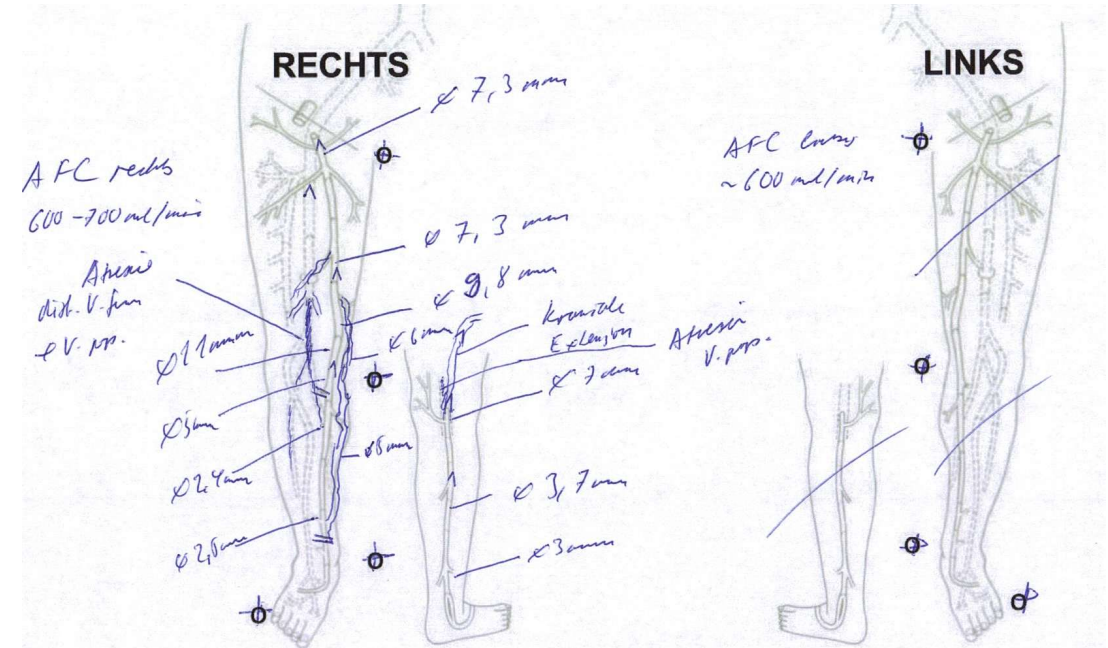 RECHTS
LINKS
⌀ 7,3 mm
AFC rechts
600-700 ml/min
AFC links
~600 ml/min
⌀ 7,3 mm
Atresie
dist. V. fem
& V. pop.
⌀ 9,8 mm
⌀ 6 mm
kraniale
Extension
Atresie
V. pop.
⌀ 11 mm
⌀ 7 mm
⌀ 5 mm
⌀ 2,4 mm
⌀ 3,7 mm
⌀ 3 mm